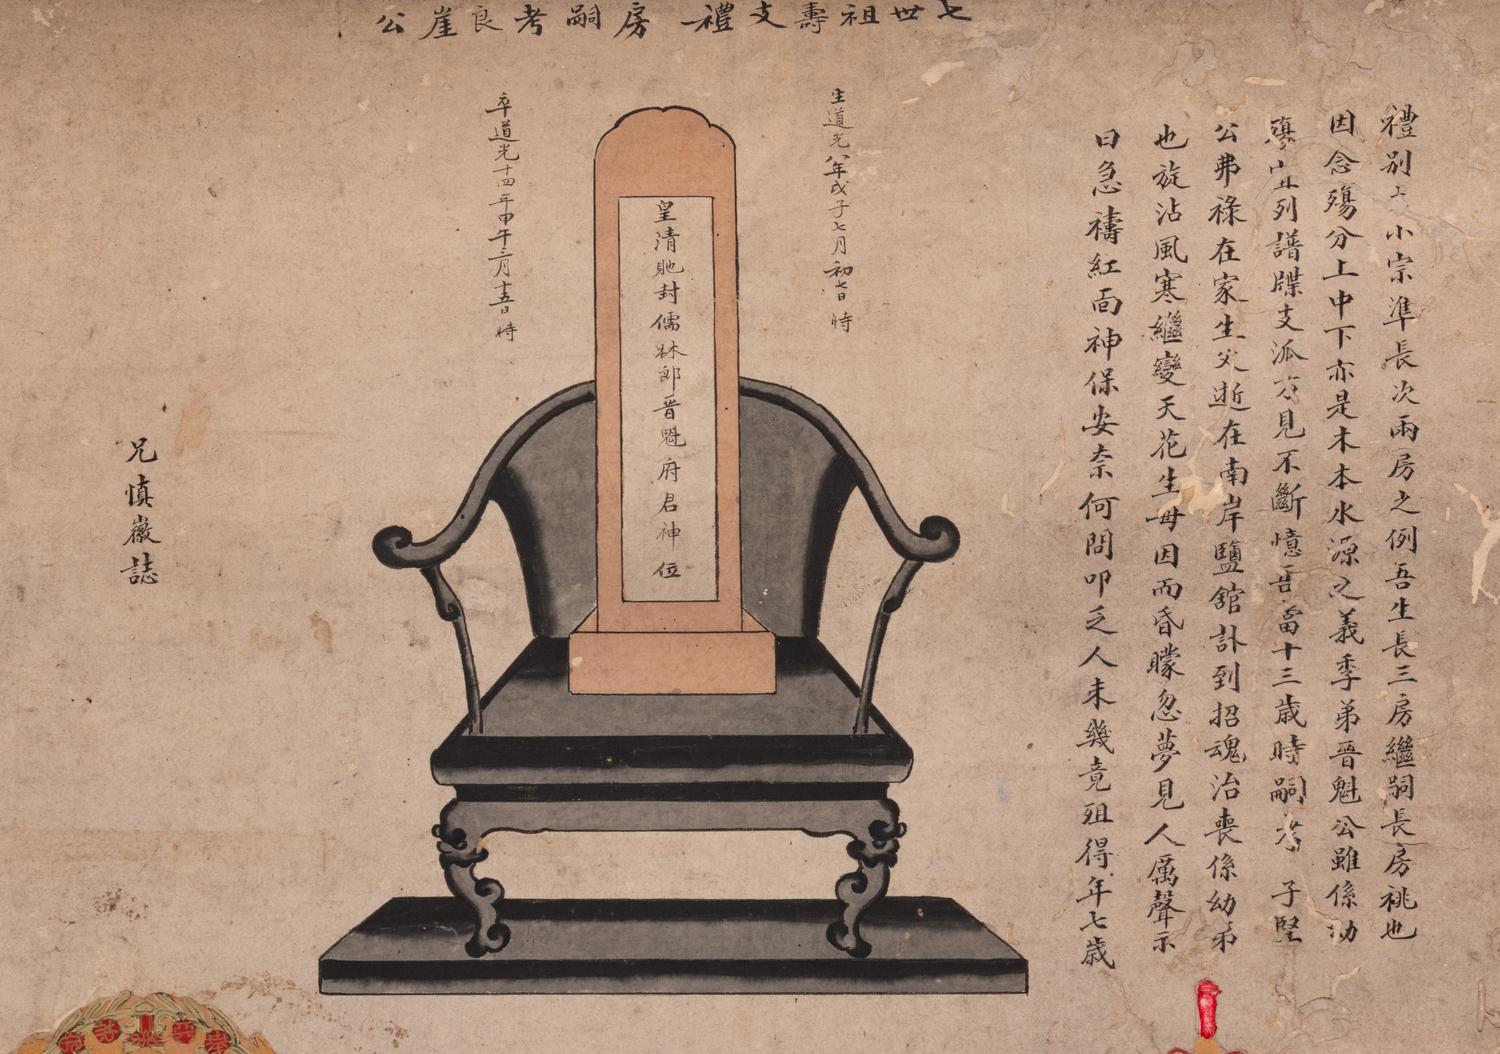 七世祖壽支禮一房嗣考良崖公
禮別小宗準長次兩房之例吾生長三房繼嗣長房祧也
因念殤分上中下亦是木本水源之義季弟晉魁公雖係幼
殤列譜牒支派見不斷憶吾當十三歲時嗣考子堅
公弗祿在家生父逝在南岸鹽舘訃到招魂治喪係幼弟
也旋沾風寒繼變天花生母因而昏矇忽夢見人厲聲示
曰急禱紅面神保安奈何問叩乏人未幾竟殂得年七歲
生道光八年戊子七月初七日時
皇清貤封儒林郎晉魁府君神位
卒道光十四年甲午三月十五日時
兄慎徽誌